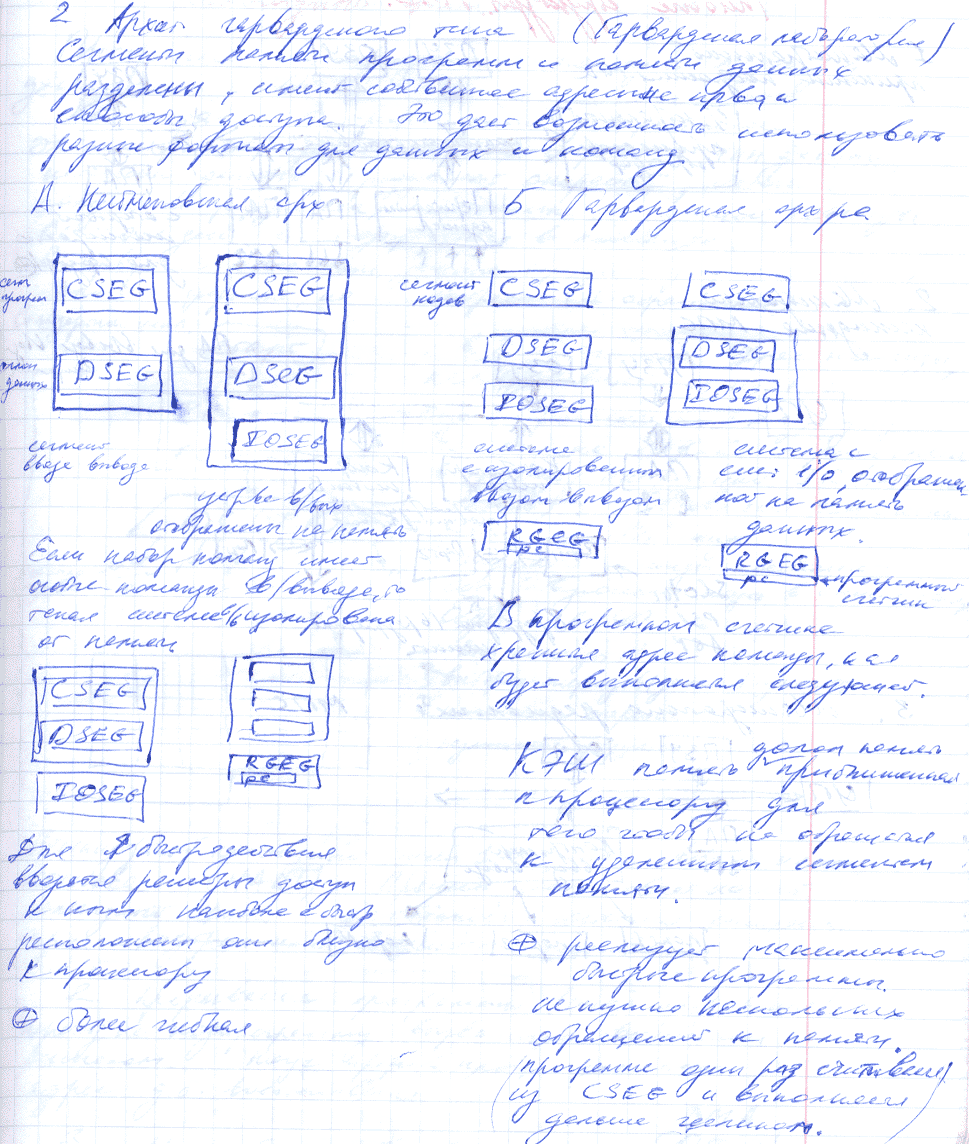 2 Архит гарвардского типа (Гарвардская лаборатория)
Сегменты памяти программ и памяти данных
разделены, имеют собственное адресные пр-ва и
способы доступа. Это дает возможность использовать
разные форматы для данных и команд.
А. Неймановская арх
Б Гарвардская арх ра
сегм
програм
CSEG
DSEG
данных
CSEG
DSEG
IOSEG
сегмент
ввода вывода
устр-ва в/вых
отображены на память
Если набор команд имеет
команды в/вывода, то
такая система в/в изолирована
от памяти
CSEG
DSEG
IOSEG
RGEG
PC
Для быстродействия
вводятся регистры доступ
к ним наиболее быстр
расположены они близко
к процессору
⊕ более гибкая
сегмент
кодов
CSEG
DSEG
IOSEG
система
с изолированным
вводом-выводом
RGEG
PC
CSEG
DSEG
IOSEG
система с
I/O, отображен
ной на память
данных.
RGEG
PC
программный
счетчик
В програмном счетчике
хранится адрес команды, к-ая
будет выполняться следующей.
КЭШ память приближенная
к процессору для
того чтобы не обращаться
к удаленным сегментам
памяти.
⊕ реализует максимально
быстрые программы.
не нужно нескольких
обращений к памяти.
(программа один раз считывается
из CSEG и выполняется
дальше целиком.)